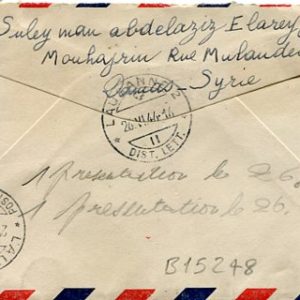 Suleyman abdelaziz Elarey
Mouhajrin Rue
Damas - Syrie
LAUSANNE 2
26.VI.44-14
II
* DIST. LETT. *
1 presentation le 26.
1 presentation le 26.
B15248